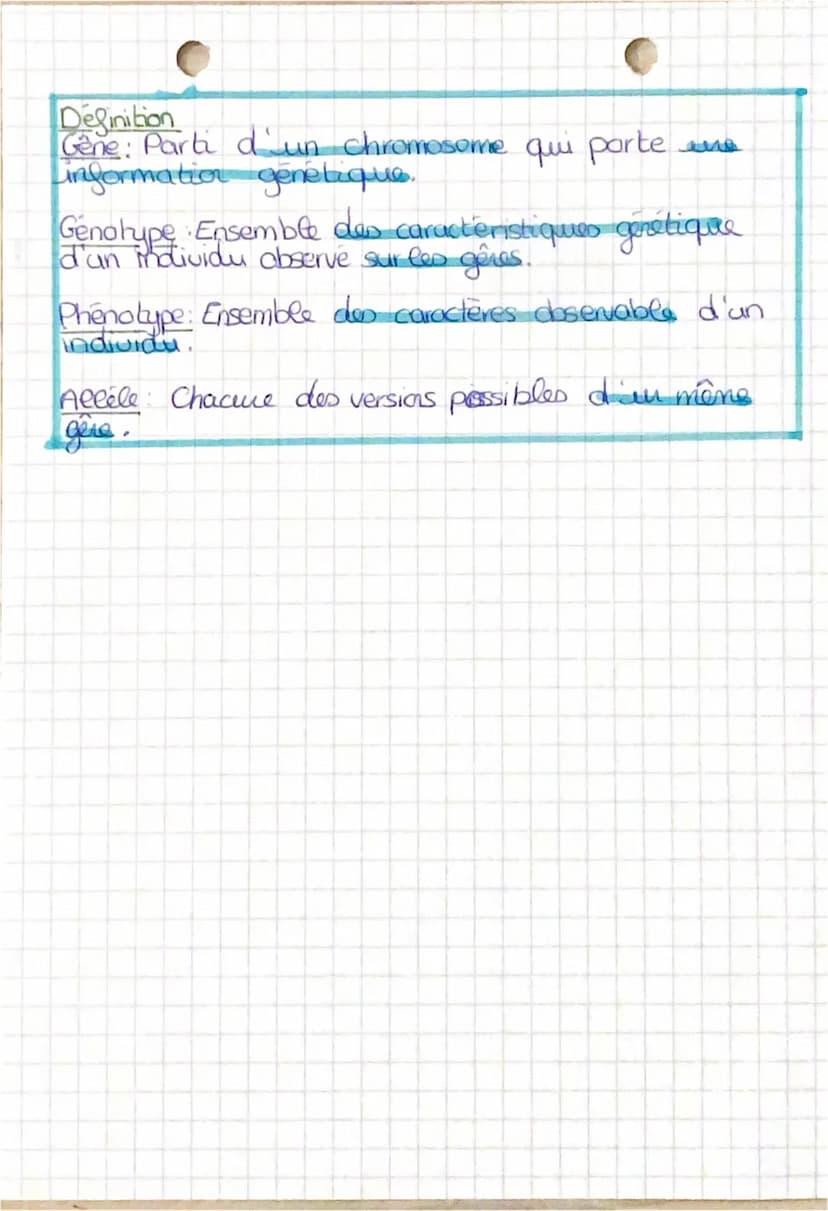 Définition
Gêne : Parti d'un chromosome qui porte une
information génétique.
Génotype : Ensemble des caractéristiques génétique
d'un individu observé sur les gênes.
Phénotype : Ensemble des caractères observable d'un
individu.
Allèle : Chacune des versions possibles d'un même
gêne.